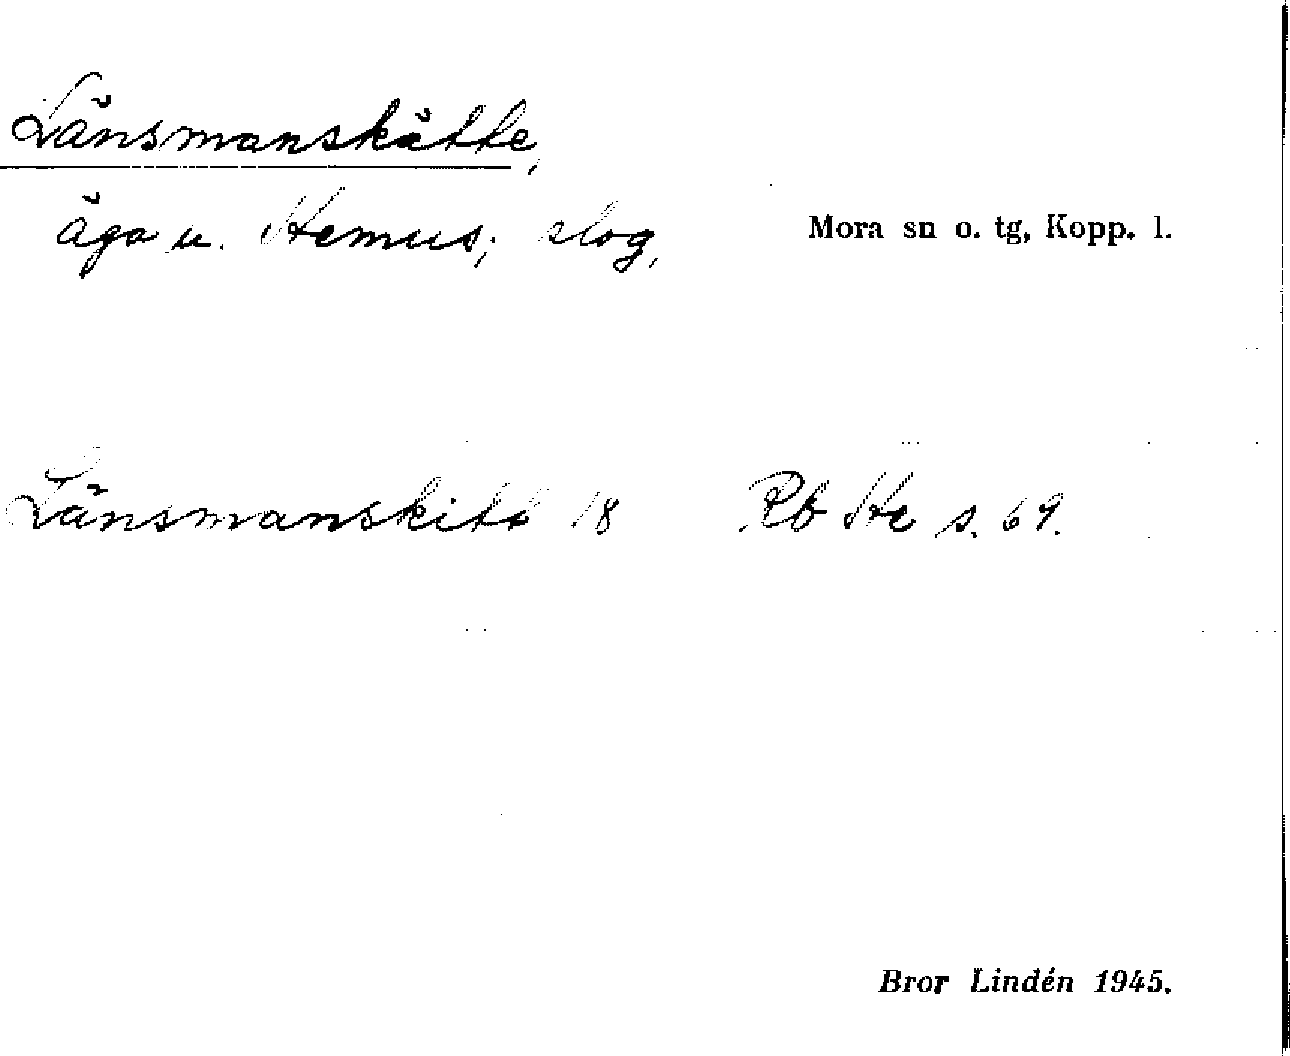 Länsmanskätte,
äga u. Hemus; slog,
Mora sn o. tg, Kopp. l.
Länsmanskitt 18 Rb He s. 69.
Bror Lindén 1945.